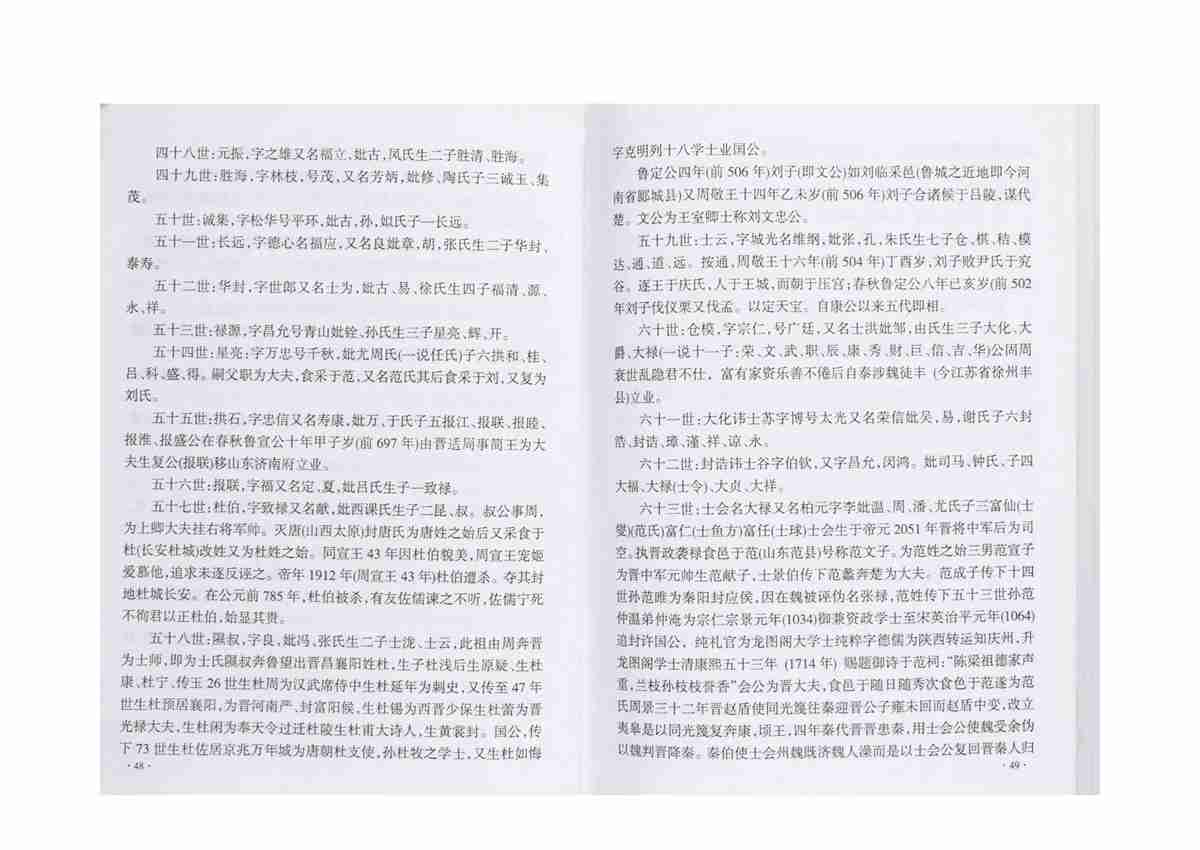 四十八世:元振,字之雄又名福立,妣古,凤氏生二子胜清、胜海。
四十九世:胜海,字林枝,号茂,又名芳炳,妣修、陶氏子三诚玉、集
茂。
五十世:诚集,字松华号平环,妣古,孙,姒氏子一长远。
五十一世:长远,字德心名福应,又名良妣章,胡,张氏生二子华封、
泰寿。
五十二世:华封,字世郎又名士为,妣古、易、徐氏生四子福清、源、
永、祥。
五十三世:禄源,字昌允号青山妣铨、孙氏生三子星亮、辉、开。
五十四世:星亮;字万忠号千秋,妣尤周氏(一说任氏)子六拱和、桂、
吕、科、盛、得。嗣父职为大夫,食采于范,又名范氏其后食采于刘,又复为
刘氏。
五十五世:拱石,字忠信又名寿康,妣万,于氏子五报江、报联、报睦、
报淮、报盛公在春秋鲁宣公十年甲子岁(前697年)由晋适局事简王为大
夫生复公(报联)移山东济南府立业。
五十六世:报联,字福又名定,夏,妣吕氏生子一致禄。
五十七世:杜伯,字致禄又名献,妣西课氏生子二昆、叔。叔公事周,
为上卿大夫挂右将军帅。灭唐(山西太原)封唐氏为唐姓之始后又采食于
杜(长安杜城)改姓又为杜姓之始。同宣王43年因杜伯貌美,周宣王宠姬
爱慕他,追求未逐反诬之。帝年1912年(周宣王43年)杜伯遭杀。夺其封
地杜城长安。在公元前785年,杜伯被杀,有友佐儒谏之不听,佐儒宁死
不徇君以正杜伯,始显其贵。
五十八世:隰叔,字良,妣冯、张氏生二子士泷、士云,此祖由周奔晋
为士师,即为士氏隰叔奔鲁望出晋昌襄阳姓杜,生子杜浅后生原疑、生杜
康、杜宁、传玉26世生杜周为汉武席侍中生杜延年为刺史,又传至47年
世生杜预居襄阳,为晋河南严、封富阳侯,生杜锡为西晋少保生杜蕾为晋
光禄大夫,生杜闲为奉天令过迁杜陵生杜甫大诗人,生黄裳封。国公,传
下73世生杜佐居京兆万年城为唐朝杜支使,孙杜牧之学士,又生杜如悔
·48·
字克明列十八学士业国公。
鲁定公四年(前506年)刘子(即文公)如刘临采邑(鲁城之近地即今河
南省郾城县)又周敬王十四年乙未岁(前506年)刘子合诸候于吕陵,谋代
楚。文公为王室卿士称刘文忠公。
五十九世:士云,字城光名维纲,妣张,孔,朱氏生七子仓、棋、秸、模
达、通、道、远。按通,周敬王十六年(前504年)丁酉岁,刘子败尹氏于究
谷。逐王于庆氏,人于王城,而朝于压宫;春秋鲁定公八年已亥岁(前502
年刘子伐仪栗又伐孟。以定天宝。自康公以来五代即相。
六十世:仓模,字宗仁,号广廷,又名士洪妣邹,由氏生三子大化、大
爵、大禄(一说十一子:荣、文、武、职、辰、康、秀、财、巨、信、吉、华)公因周
衰世乱隐君不仕,富有家资乐善不倦后自泰涉魏徒丰(今江苏省徐州丰
县)立业。
六十一世:大化讳士苏字博号太光又名荣信妣吴,易,谢氏子六封
浩、封诰、璋、谨、祥、谅、永。
六十二世:封诰讳士谷字伯钦,又字昌允,闵鸿。妣司马、钟氏、子四
大福、大禄(士令)、大贞、大样。
六十三世:士会名大禄又名柏元字李妣温、周、潘、尤氏子三富仙(士
燮)(范氏)富仁(士鱼方)富任(士球)士会生于帝元2051年晋将中军后为司
空。执晋政袭禄食邑于范(山东范县)号称范文子。为范姓之始三男范宣子
为晋中军元帅生范献子,士景伯传下范蠡奔楚为大夫。范成子传下十四
世孙范睢为秦阳封应侯,因在魏被诨伪名张禄,范姓传下五十三世孙范
仲温弟仲淹为宗仁宗景元年(1034)御兼资政学士至宋英治平元年(1064)
追封许国公,纯礼官为龙图阁大学士纯粹字德儒为陕西转运知庆州,升
龙图阁学士清康熙五十三年(1714年)赐题御诗于范祠:“陈梁祖德家声
重,兰枝孙枝枝誉香”会公为晋大夫,食邑于随日随秀次食色于范遂为范
氏周景三十二年晋赵盾使同光篾往秦迎晋公子雍未回而赵盾中变,改立
夷皋是以同光篾复奔康,顷王,四年秦代晋晋患秦,用士会公使魏受余伪
以魏判晋降秦。秦伯使士会州魏既济魏人澡而是以士会公复回晋秦人归
·49·